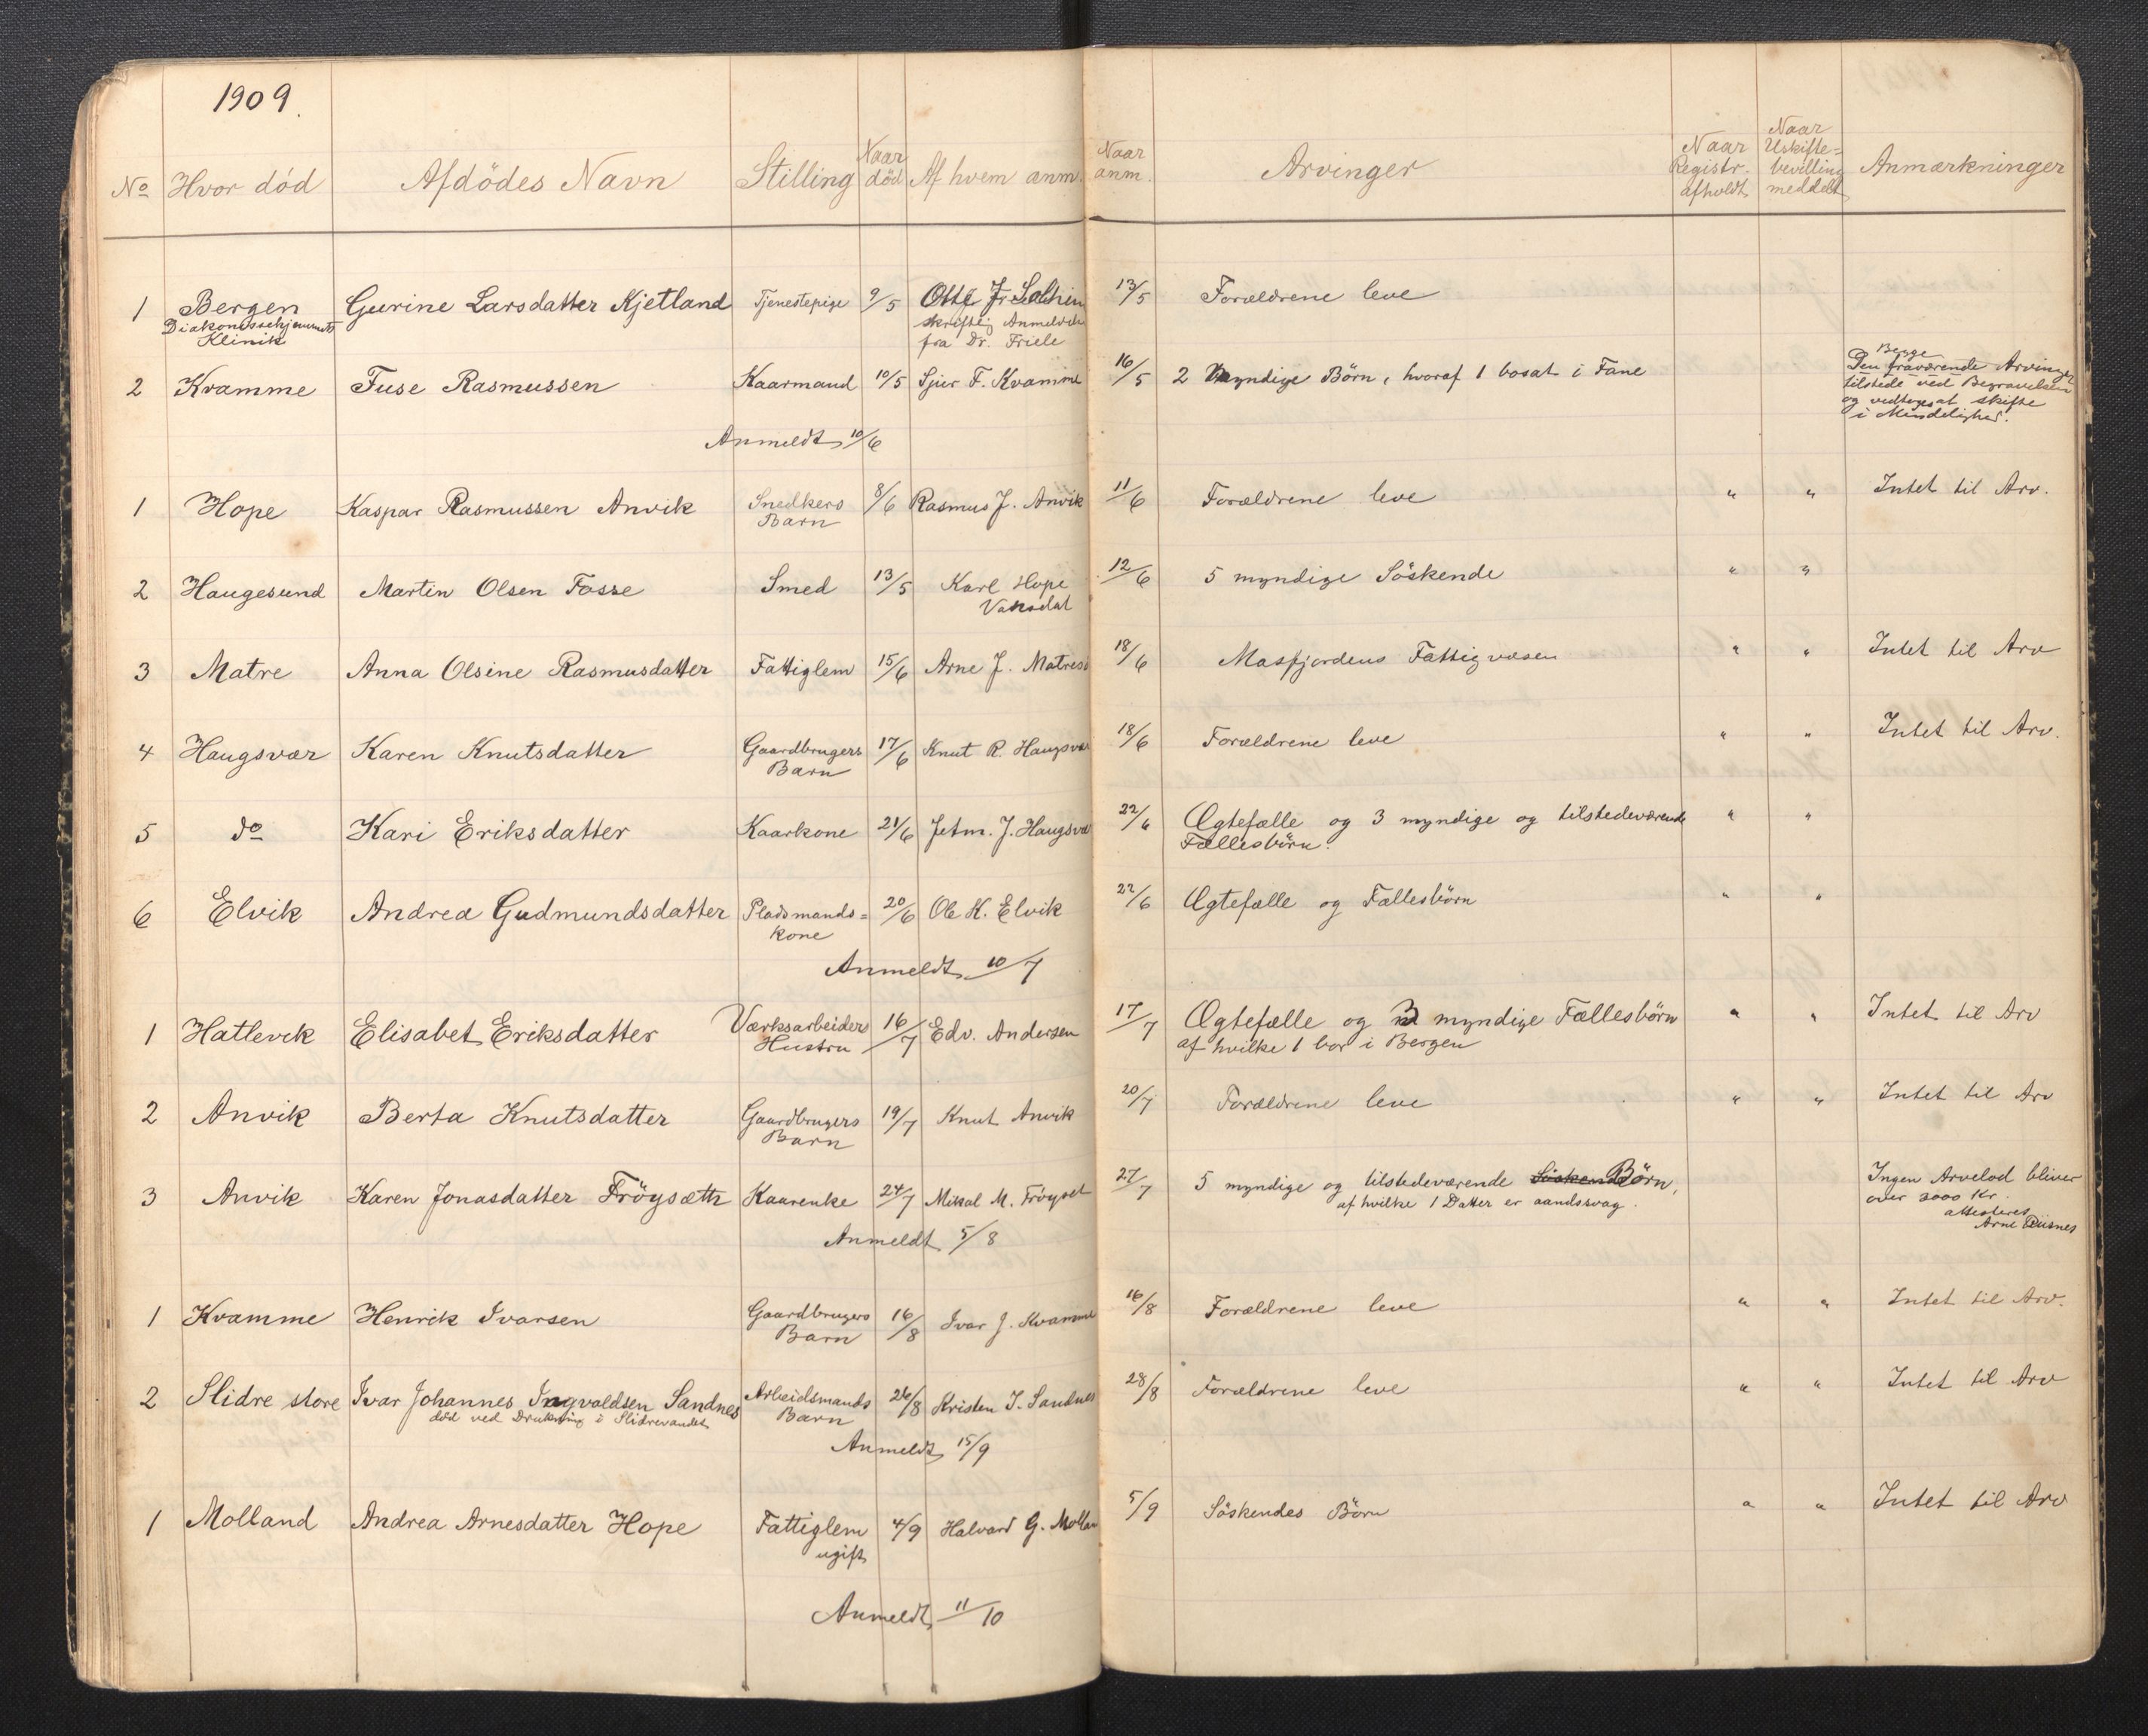 1909.
No Hvor död Afdödes Navn Stilling Naar död Af hvem anm. Naar anm. Arvinger Naar Registr. afholdt Naar Uskifte-bevilling meddelt Anmærkninger
1 Bergen Gurine Larsdatter Kjetland Tjenestepige 9/5 13/5 Forældrene leve
Diakonissehjemmets skriftlig Anmeldelse
Klinik fra Dr. Friele
2 Kvamme Fuse Rasmussen Kaarmand 10/5 Sjur F. Kvamme 16/5 2 Myndige Börn, hvoraf 1 bosat i Fane Begge
Den fraværende Arvinger
tilstede ved Begravelsen
og vedtoges at skifte
i Mindelighed.
Anmeldt 10/6
1 Hope Kaspar Rasmussen Anvik Snedkers Barn 8/6 Rasmus J. Anvik 11/6 Forældrene leve " " Intet til Arv.
2 Haugesund Martin Olsen Fosse Smed 13/5 Karl Hope 12/6 5 myndige Söskende " "
Vaksdal
3 Matre Anna Olsine Rasmusdatter Fattiglem 15/6 Arne J. Matre 18/6 Masfjordens Fattigvæsen " " Intet til Arv
4 Haugsvær Karen Knutsdatter Gaardbrugers Barn 17/6 Knut R. Haugsvær 18/6 Forældrene leve " " Intet til Arv.
5 do Kari Eriksdatter Kaarkone 21/6 Jetm. J. Haugsvæ 22/6 Ægtefælle og 3 myndige og tilstedeværende " "
Fællesbörn.
6 Elvik Andrea Gudmundsdatter Pladsmands=kone 20/6 Ole K. Elvik 22/6 Ægtefælle og Fællesbörn " "
Anmeldt 10/7
1 Hatlevik Elisabet Eriksdatter Værksarbeiders Hustru 16/7 Edv. Andersen 17/7 Ægtefælle og 3 myndige Fællesbörn " " Intet til Arv
af hvilke 1 bor i Bergen
2 Anvik Berta Knutsdatter Gaardbrugers Barn 19/7 Knut Anvik 20/7 Forældrene leve " " Intet til Arv
3 Anvik Karen Jonasdatter Fröysæth Kaarenke 24/7 Mikal M. Fröyset 27/7 5 myndige og tilstedeværende Söskende Börn, Ingen Arvelod bliver
af hvilke 1 Datter er aandssvag. over 2000 Kr.
attesteres
Arne Duesnes
Anmeldt 5/8
1 Kvamme Henrik Ivarsen Gaardbrugers Barn 16/8 Ivar J. Kvamme 16/8 Forældrene leve " " Intet til Arv.
2 Slidre store Ivar Johannes Ingvaldsen Sandnes Arbeidsmands Barn 26/8 Kristen I. Sandnes 28/8 Forældrene leve " " Intet til Arv
död ved Drukning i Slidrevandet
Anmeldt 15/9
1 Molland Andrea Arnesdatter Hope Fattiglem 4/9 Halvard G. Mollan 5/9 Söskendes Börn " " Intet til Arv
ugift
Anmeldt 11/10